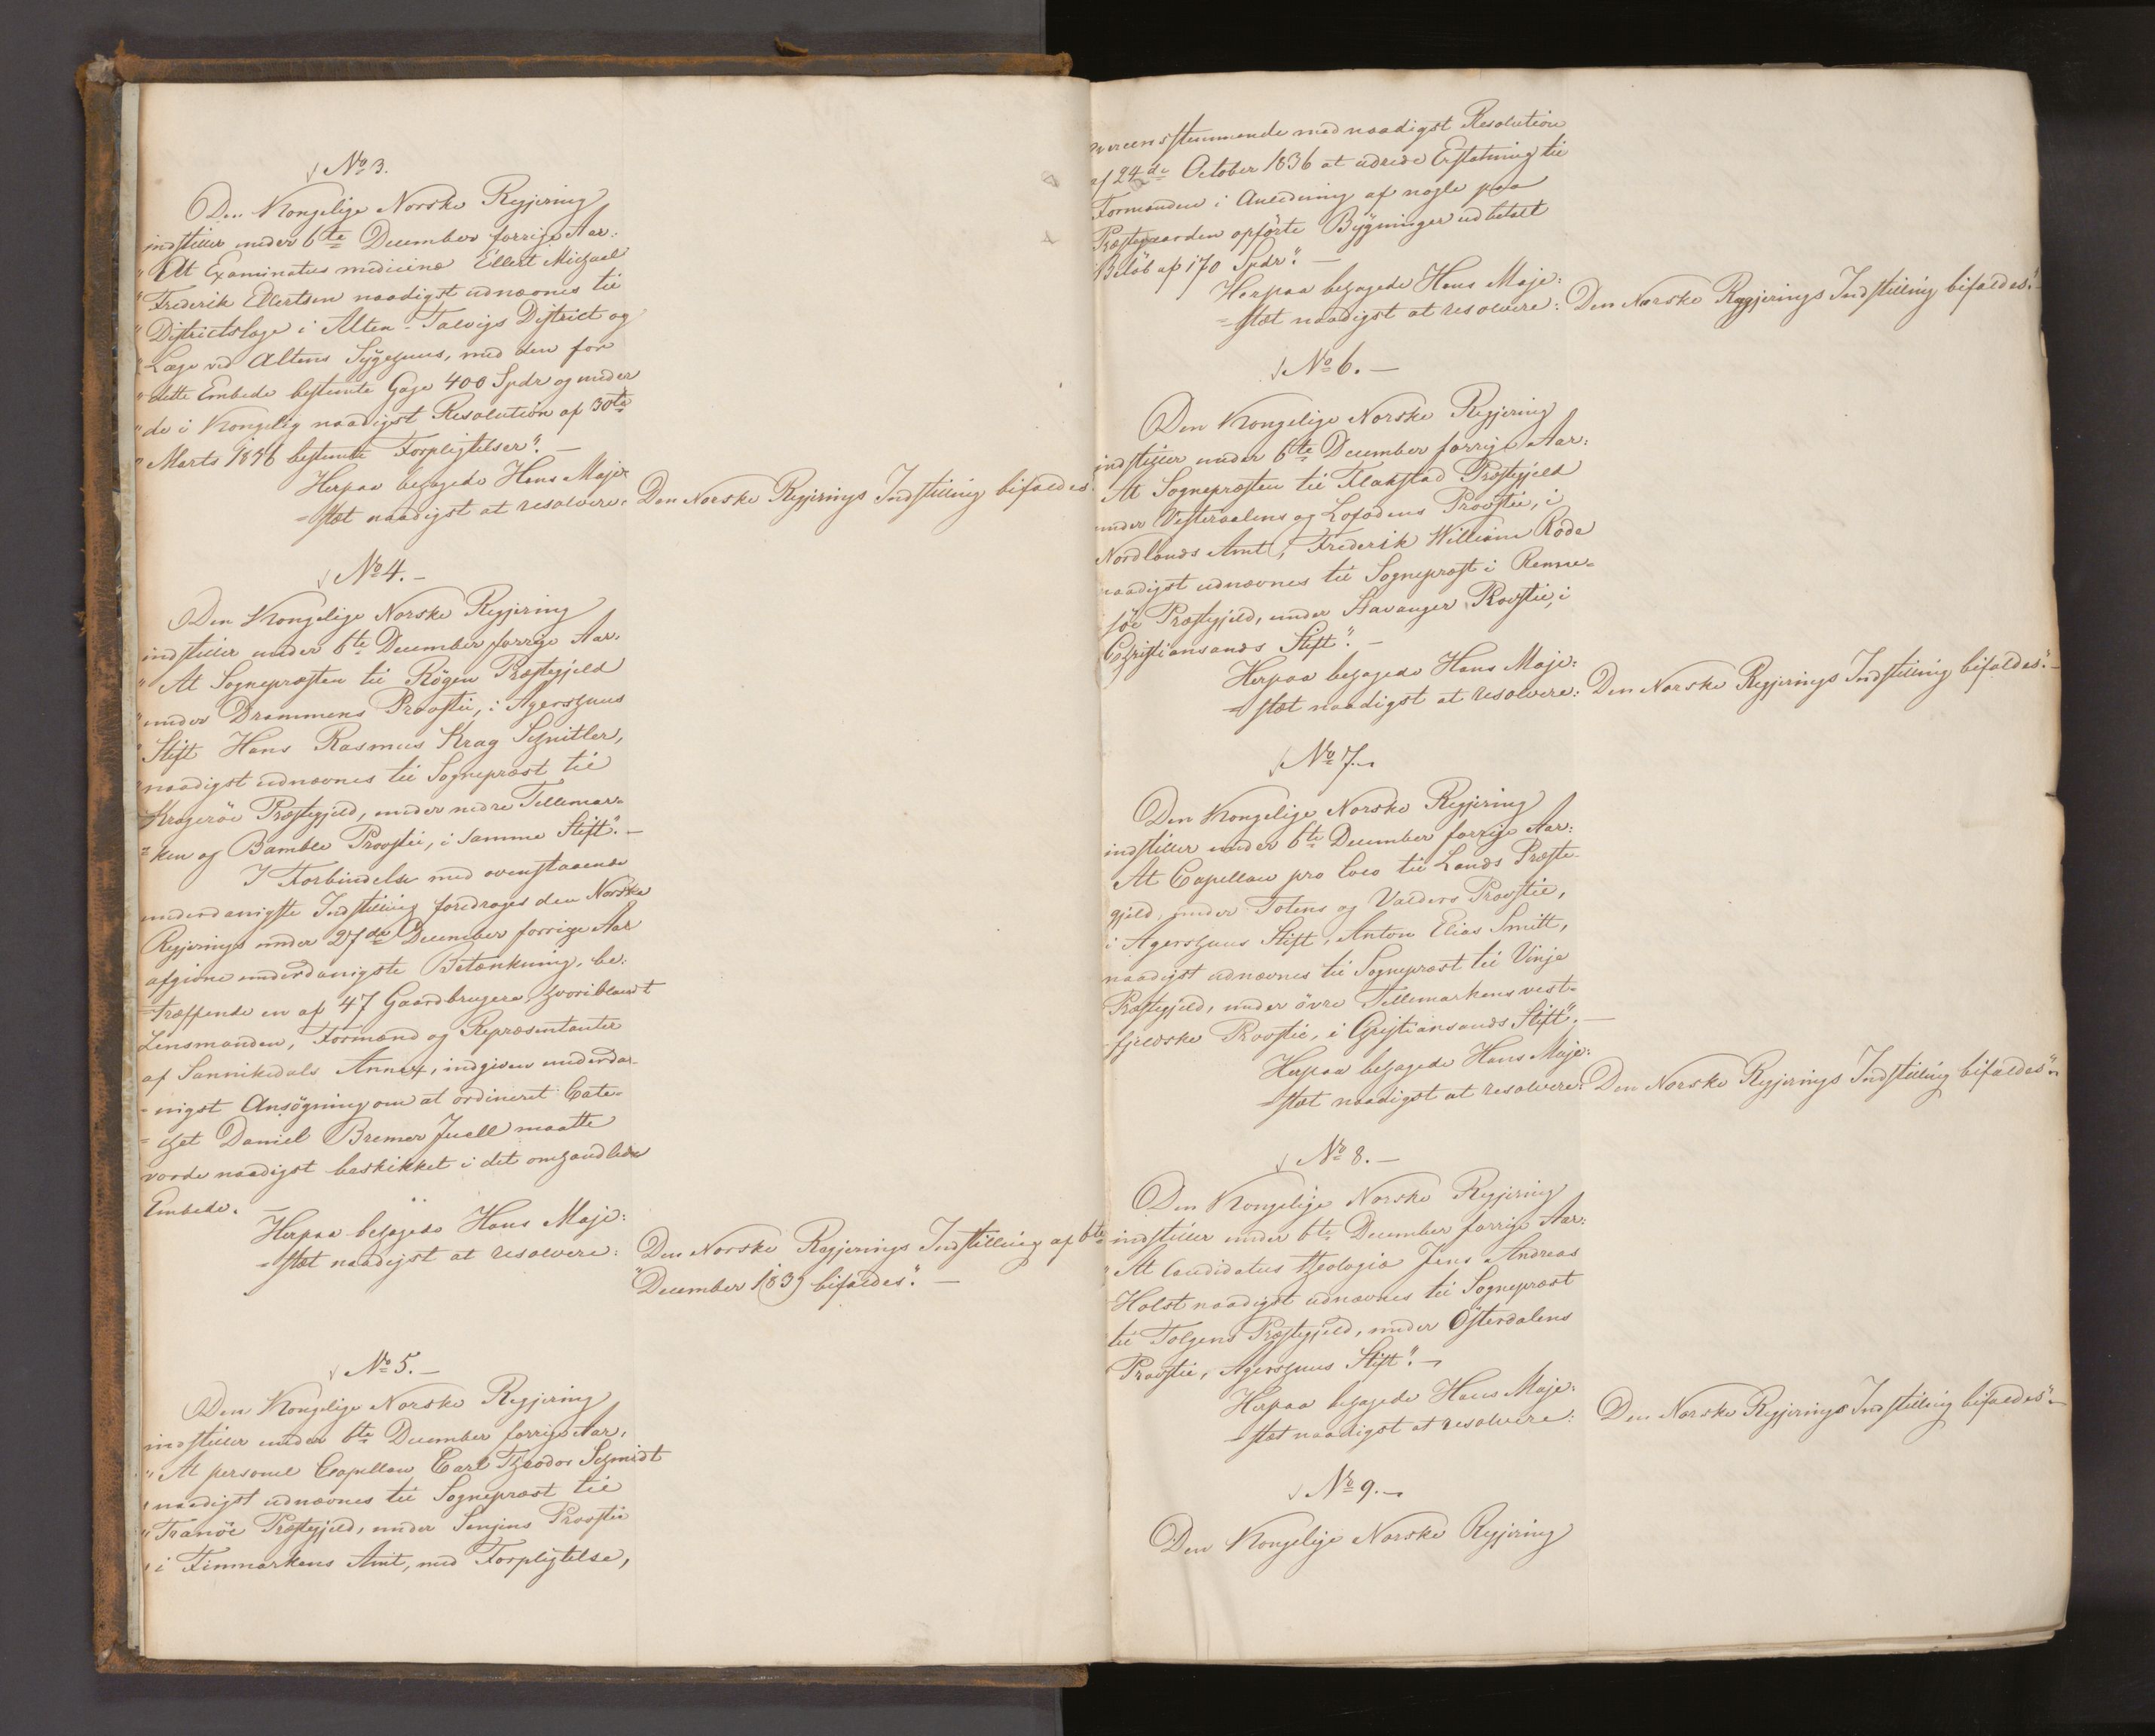 No 3.
Den Kongelige Norske Regjering
indstiller under 6te December forrige Aar:
"At Examinatus medicinæ Ellert Michael
"Frederik Ellertsen naadigst udnævnes til
"Districtslæge i Alten-Talvigs District og
"Læge ved Altens Sygehuus, med den for
"dette Embede bestemte Gage 400 Spdr og under
"de i Kongelig naadigst Resolution af 30te
"Marts 1836 bestemte Forpligtelser". —
Herpaa behagede Hans Maje-
=stæt naadigst at resolvere: Den Norske Regjerings Indstilling bifaldes".
No 4. —
Den Kongelige Norske Regjering
indstiller under 6te December forrige Aar:
"At Sognepræsten til Røgen Præstegjeld
"under Drammens Provstie, i Agershuus
"Stift Hans Rasmus Krag Schnitler,
"naadigst udnævnes til Sognepræst til
"Kragerøe Præstegjeld, under nedre Tellemar-
"=ken og Bamble Provstie, i samme Stift". —
I Forbindelse med ovenstaaende
underdanigste Indstilling foredrages den Norske
Regjerings under 27de December forrige Aar
afgivne underdanigste Betænkning, be-
=træffende en af 47 Gaardbrugere, hvoriblandt
Linsmanden, Formænd og Repræsentanter
af Sannikedals Annex, indgiven underda-
=nigst Ansøgning om at ordineret Cate-
=chet Daniel Bremer Juell maatte
vorde naadigst beskikket i det omhandlede
Embede. —
Herpaa behagede Hans Maje-
=stæt naadigst at resolvere: Den Norske Regjerings Indstilling af 6te
"December 1839 bifaldes". —
No 5. —
Den Kongelige Norske Regjering
indstiller under 6te December forrige Aar:
"At personel Capellan Carl Theodor Schmidt
"naadigst udnævnes til Sognepræst til
"Tranöe Præstegjeld, under Senjens Provstie
"i Finmarkens Amt, med Forpligtelse,
overeensstemmende med naadigst Resolution
af 24de October 1836 at udrede Erstatning til
Formanden i Anledning af nogle paa
Præstegaarden opførte Bygninger udbetalt
Beløb af 170 Spdr". —
Herpaa behagede Hans Maje-
=stæt naadigst at resolvere: Den Norske Regjerings Indstilling bifaldes". —
No 6. —
Den Kongelige Norske Regjering
indstiller under 6te December forrige Aar:
At Sognepræsten til Flakstad Præstegjeld
under Vesteraalens og Lofodens Provstie, i
Nordlands Amt, Frederik William Rode
naadigst udnævnes til Sognepræst i Renne-
söe Præstegjeld, under Stavanger Provstie, i
Christiansands Stift". —
Herpaa behagede Hans Maje-
=stæt naadigst at resolvere: Den Norske Regjerings Indstilling bifaldes". —
No 7. —
Den Kongelige Norske Regjering
indstiller under 6te December forrige Aar:
At Capellan pro loco til Lands Præste-
gjeld, under Totens og Valders Provstie,
i Agershuus Stift, Anton Elias Smitt,
naadigst udnævnes til Sognepræst til Vinje
Præstegjeld, under övre Tellemarkens vest-
fjeldske Provstie, i Christiansands Stift". —
Herpaa behagede Hans Maje-
=stæt naadigst at resolvere: Den Norske Regjerings Indstilling bifaldes". —
No 8. —
Den Kongelige Norske Regjering
indstiller under 6te December forrige Aar:
"At Candidatus theologiæ Jens Andreas
Holst naadigst udnævnes til Sognepræst
til Tolgens Præstegjeld, under Österdalens
Provstie, Agershuus Stift". —
Herpaa behagede Hans Maje-
=stæt naadigst at resolvere: Den Norske Regjerings Indstilling bifaldes". —
No 9. —
Den Kongelige Norske Regjering